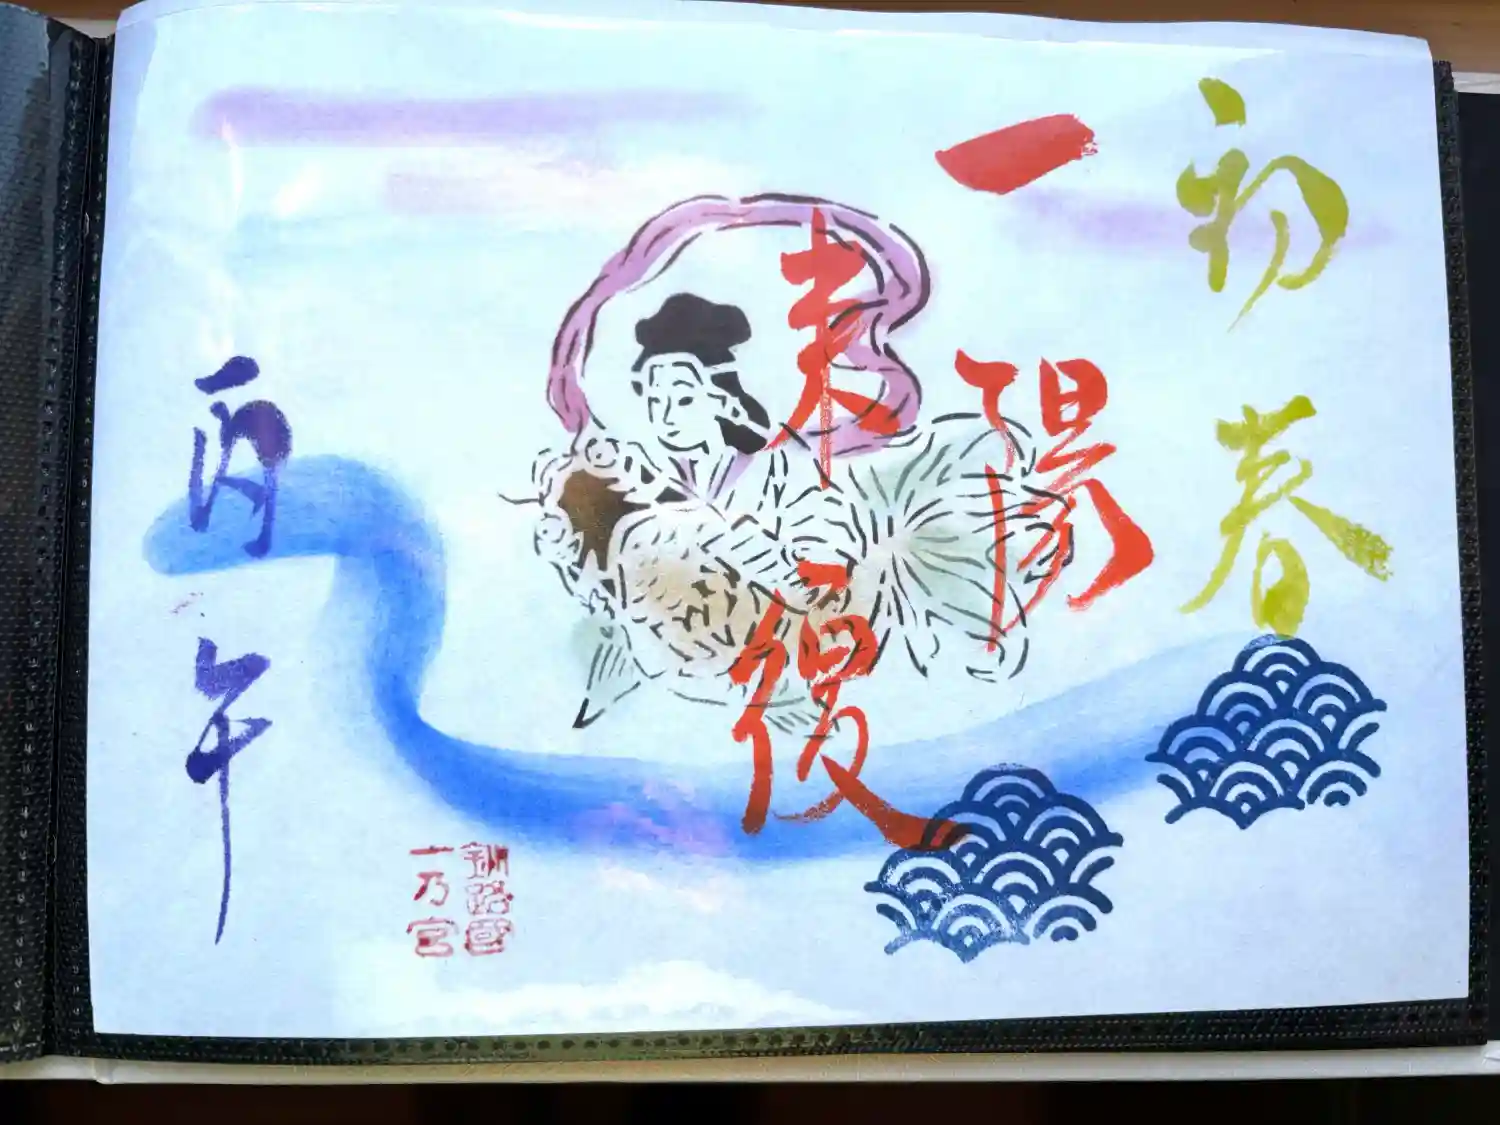 初春
一陽
来復
丙午
釧路國
一乃宮